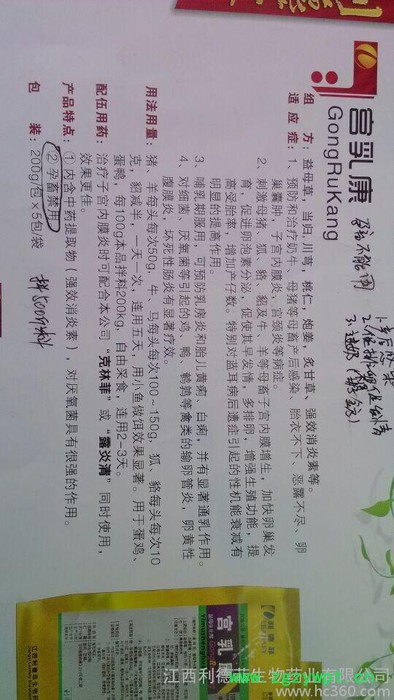 宫乳康
GongRuKang
组 方：益母草，当归，川芎，桃仁，炮姜，炙甘草、强效消炎素等。
适 应 症：1、预防和治疗奶牛、母猪等母畜产后感染、胎衣不下、恶露不尽、卵
巢囊肿、子宫内膜炎，宫颈炎等病症。
2、刺激母猪，狐，貉、貂及牛、羊等母畜子宫内膜增生，加快卵巢发
育，促进卵泡素分泌，促使其早发情，多排卵，增强生殖功能，提
高受胎率，增加产仔数。特别对蓝耳病后遗症引起的性机能衰减有
明显的提高作用。
3、哺乳期服用，可预防乳房炎和胎儿黄痢、白痢，并有显著通乳作用。
4、对细菌、厌氧菌等引起的鸡，鸭、鹌鹑等禽类的输卵管炎，卵黄性
腹膜炎，坏死性肠炎有显著疗效。
用法用量：猪、羊每头每次50g，牛、马每头每次100-150g，狐、貉每头每次10
克，貂减半，一天一次，连用五天，用小鱼做饵效果显著。用于蛋鸡、
蛋鸭，每100g本品拌料200kg，自由采食，连用2-3天。
配伍用药：治疗子宫内膜炎时可配合本公司“克林菲”或“露炎清”同时使用，
效果更佳。
产品特点：①内含中药提取物（强效消炎素），对厌氧菌具有很强的作用。
②孕畜禁用
包 装：200g/包×5包/袋
拌500斤料
宫乳康
江西利德菲生物药业有限公司
www.zgzywpf.cn
www.hc360.com